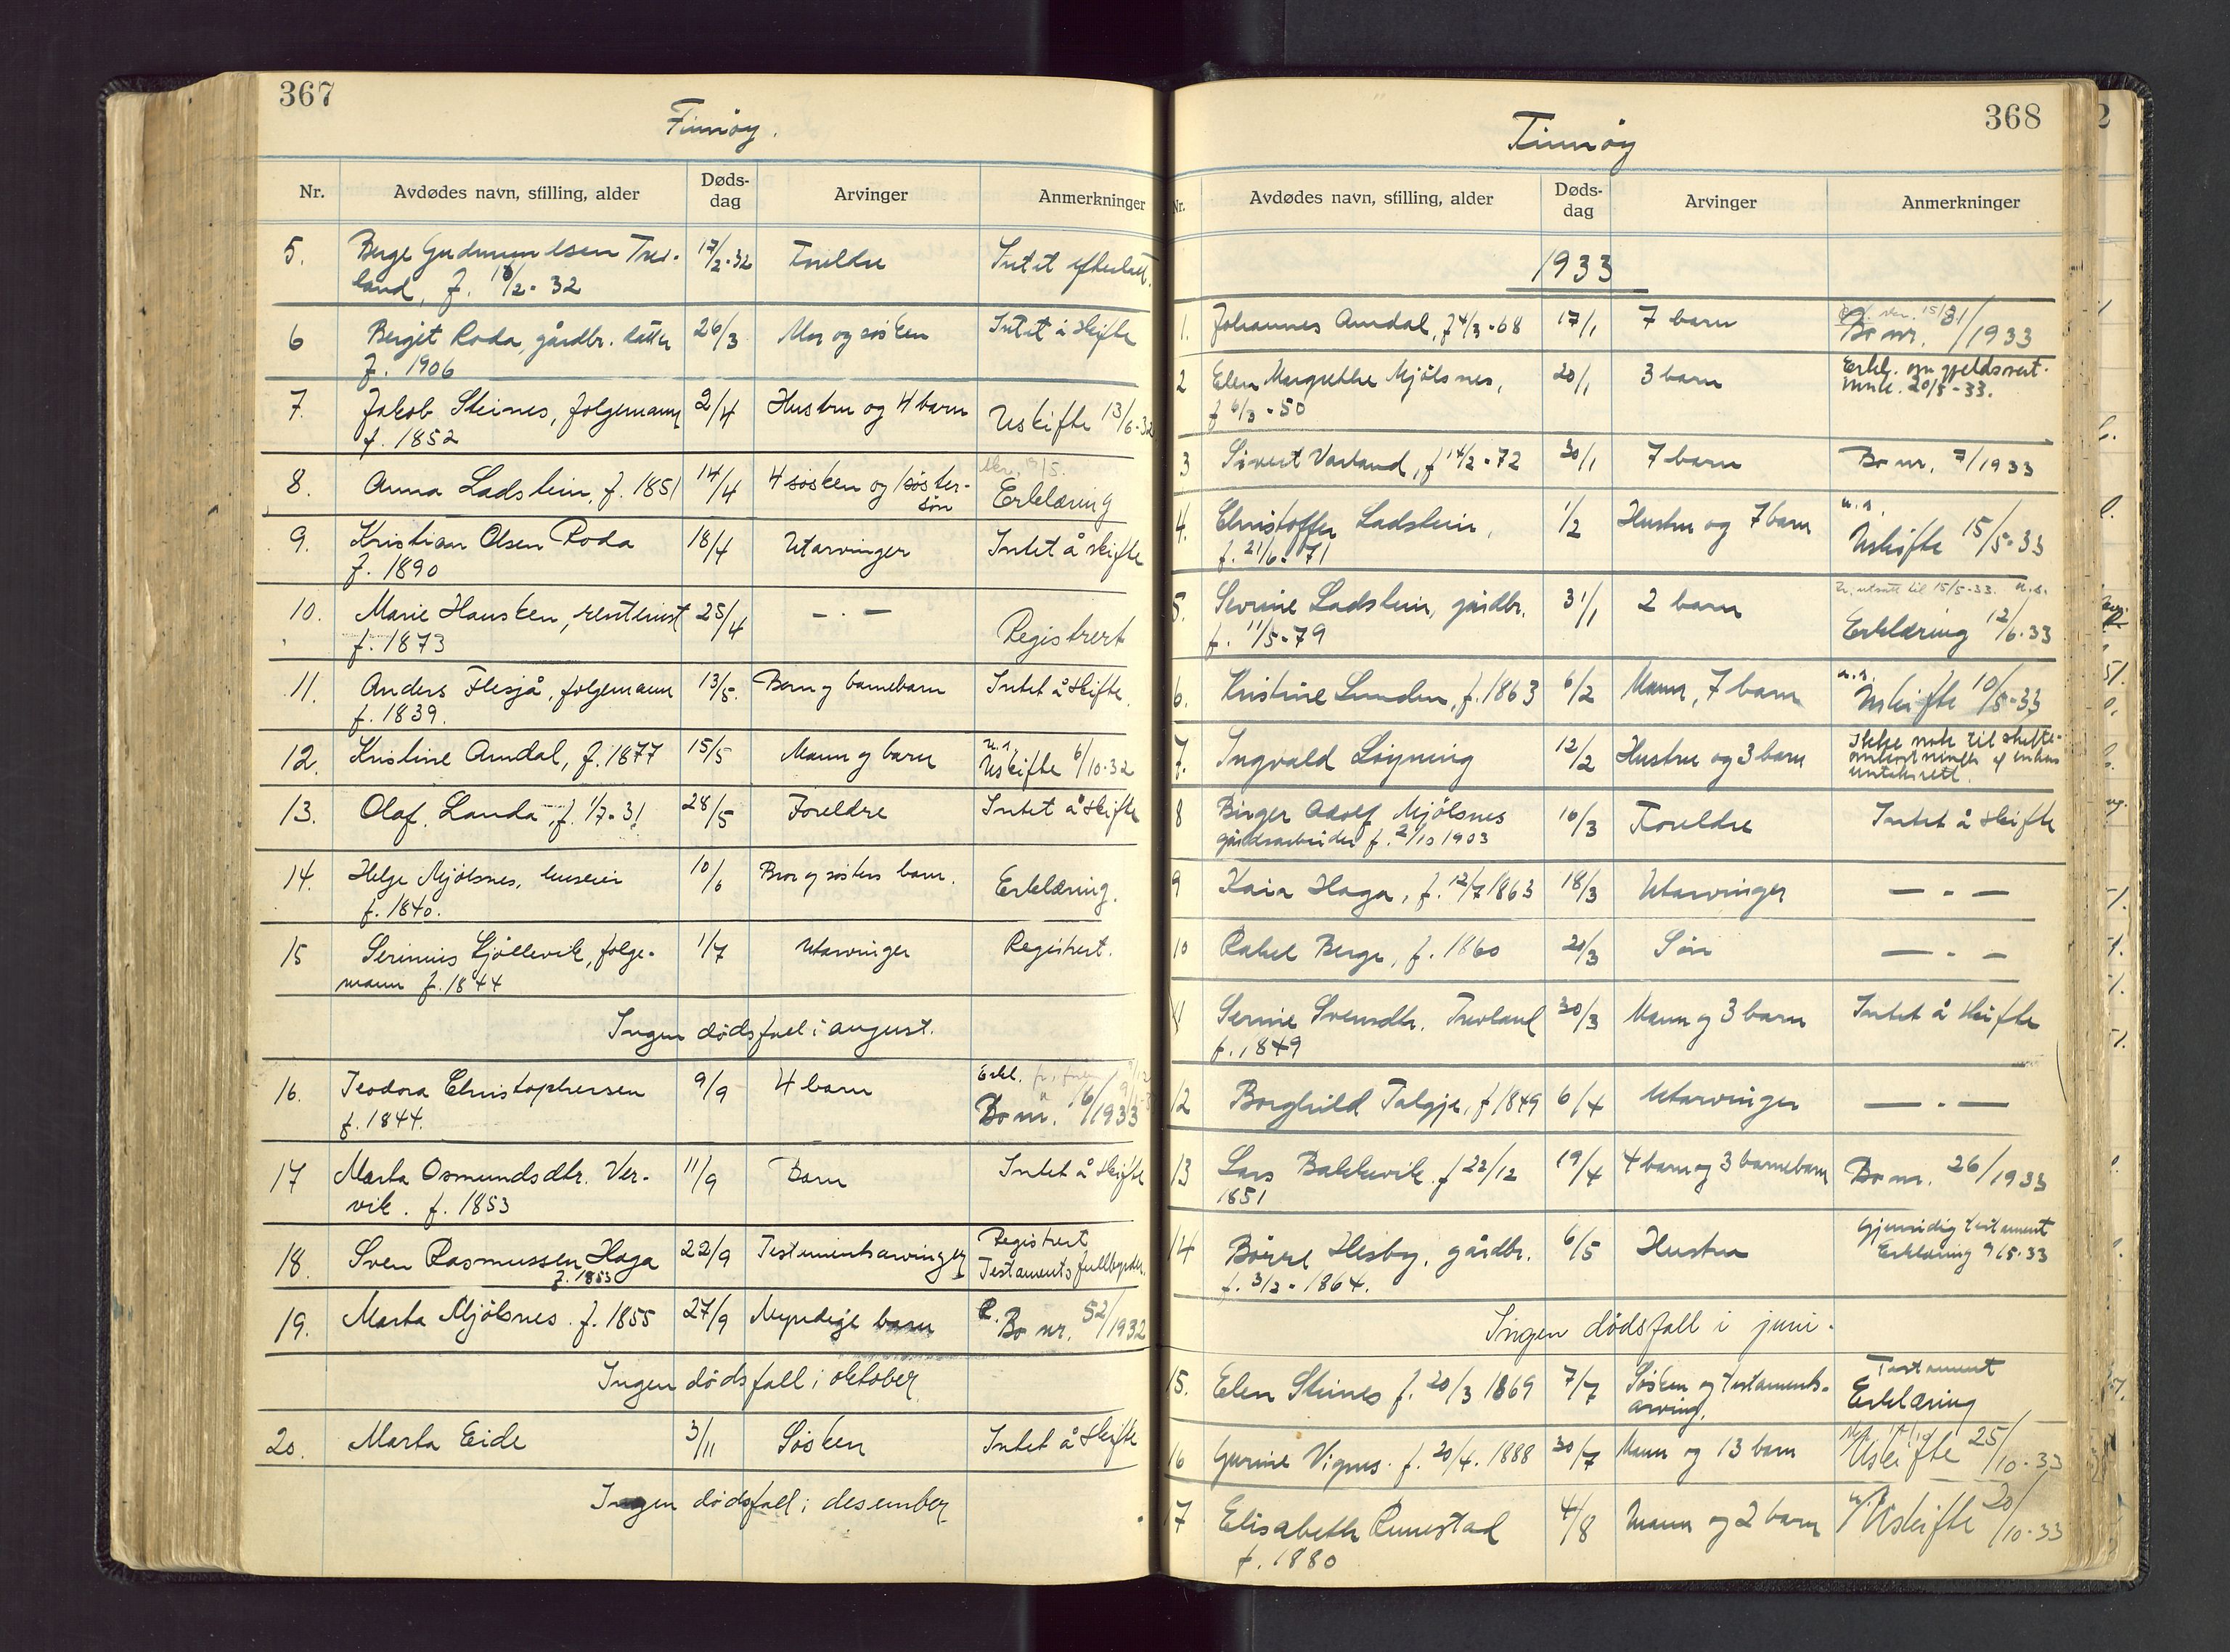 367
Finnøy.
Nr. Avdødes navn, stilling, alder Døds-dag Arvinger Anmerkninger
5. Berge Gudmundsen Tred- 17/2-32 Foreldre Intet efterlatt.
land, f. 13/2-32
6 Berget Roda, gårdbr. datter 26/3 Mor og søsken Intet å skifte
f. 1906
7. Jakob Steines, folgemann 2/4 Hustru og 4 barn Uskifte 13/6-32
f. 1852
8. Anna Ladstein, f. 1851 14/4 4 søsken og 1 søster-søn Erklæring
9. Kristian Olsen Roda 18/4 Utarvinger Intet å skifte
f. 1890
10. Marie Hausken, rentenist 25/4 — · — Registrert
f. 1873
11. Anders Flesjå, folgemann 13/5. Barn og barnebarn Intet å skifte.
f. 1839.
12. Kristine Amdal, f. 1877 15/5 Mann og barn u.s. Uskifte 6/10-32
13. Olaf Landa, f. 1/7-31 28/5 Foreldre Intet å skifte
14. Helge Mjølsnes, huseier 10/6 Bror og søsters barn. Erklæring.
f. 1840.
15 Serinius Kjøllevik, folge- 1/7 Utarvinger Registrert.
mann f. 1844
Ingen dødsfall i august.
16. Teodora Christophersen 9/9 4 barn Erkl. Bo nr. 16/1933
f. 1844.
17 Marta Osmundsdtr. Ver- 11/9 Barn Intet å skifte
vik. f. 1853
18. Sven Rasmussen Haga 22/9 Testamentsarvinger Registrert
f. 1853 Testamentsfullbyrder.
19. Marta Mjølsnes. f. 1855 27/9 Myndige barn R. Bo nr. 52/1932
Ingen dødsfall i oktober
20. Marta Eide 3/11 Søsken Intet å skifte
Ingen dødsfall i desember
368
Finnøy
Nr. Avdødes navn, stilling, alder Døds-dag Arvinger Anmerkninger
1933
1. Johannes Amdal, f 4/3-68 17/1 7 barn Bo nr. 31/1933
2 Elen Margrethe Mjølsnes, 20/1 3 barn Erkl. om gjeldsovert.
f 6/3-50 20/5-33.
3 Sivert Varland, f 14/2-72 30/1 7 barn Bo nr. 7/1933
4. Christoffer Ladstein, 1/2 Hustru og 7 barn u.s. Uskifte 15/5-33
f. 21/6-71
5. Sevrine Ladstein, gårdbr. 31/1 2 barn utsatt til 15/5-33. u.s.
f. 11/5-79 Erklæring 12/6-33
6. Kristine Lunden, f. 1863 6/2 Mann, 7 barn u.s. Uskifte 10/5-33
7. Ingvald Løyning 12/2 Hustru og 3 barn Ikke nok til skifte-
8 Birger Adolf Mjølsnes 16/3 Foreldre Intet å skifte
gårdsarbeider f. 2/10 1903
9 Kaia Haga, f. 12/7 1863 18/3 Utarvinger — · —
10 Rakel Berge, f. 1860 20/3 Søn — · —
11 Serine Svensdtr. Trevland 30/3 Mann og 3 barn Intet å skifte
f. 1849
12 Borghild Talgje, f 1849 6/4 Utarvinger — · —
13 Lars Bakkevik. f 22/12 19/4 4 barn og 3 barnebarn Bo nr. 26/1933
1851
14 Børre Hesby, gårdbr. 6/5 Hustru Gjensidig testament
f. 3/3-1864. Erklæring 9/5-33
Ingen dødsfall i juni.
15. Elen Steines f. 20/3 1869 7/7 Søsken og testaments- Testament
arving. Erklæring
16 Gurine Vignes. f. 20/4. 1888 30/7 Mann og 13 barn Uskifte 25/10-33
17 Elisabeth Runestad 4/8 Mann og 2 barn u.s. Uskifte 20/10-33
f. 1880